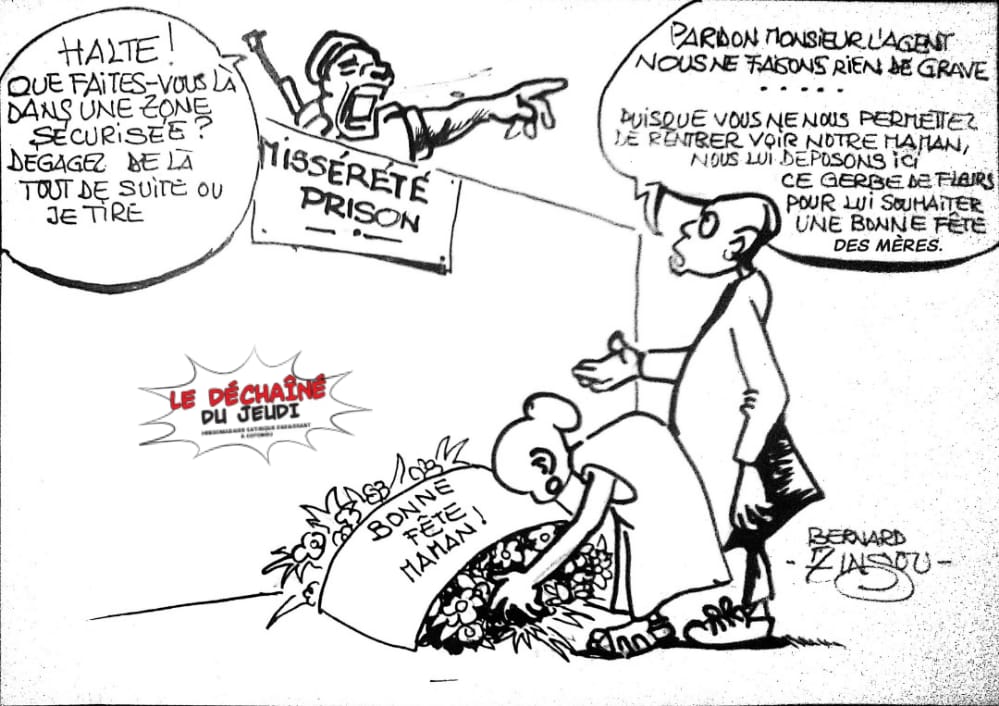 HALTE !
QUE FAITES-VOUS LÀ
DANS UNE ZONE
SÉCURISÉE ?
DÉGAGEZ DE LÀ
TOUT DE SUITE OU
JE TIRE
MISSÉRÉTÉ
PRISON
PARDON MONSIEUR L'AGENT
NOUS NE FAISONS RIEN DE GRAVE
.....
PUISQUE VOUS NE NOUS PERMETTEZ
DE RENTRER VOIR NOTRE MAMAN,
NOUS LUI DEPOSONS ICI
CE GERBE DE FLEURS
POUR LUI SOUHAITER
UNE BONNE FÊTE
DES MÈRES.
LE DÉCHAÎNÉ
DU JEUDI
HEBDOMADAIRE SATIRIQUE PARAISSANT
À COTONOU
BONNE
FÊTE
MAMAN !
BERNARD
- ZINSOU -